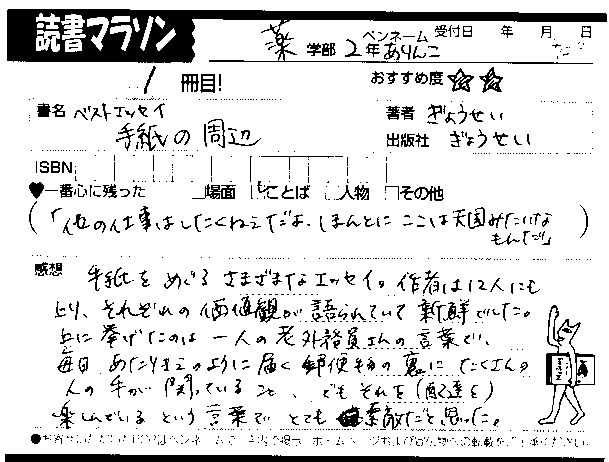 読書マラソン
薬 学部 2年 ペンネーム ありんこ 受付日 年 月 日
1 冊目! おすすめ度 ☆☆
書名 ベストエッセイ 著者 ぎょうせい
手紙の周辺 出版社 ぎょうせい
ISBN
♥一番心に残った □場面 □ことば □人物 □その他
(「他の仕事はしたくねえだよ、ほんとにここは天国みたいな
もんだ」)
感想 手紙をめぐるさまざまなエッセイ。作者は12人にも
上り、それぞれの価値観が語られていて新鮮でした。
上に挙げたのは一人の老外務員さんの言葉で、
毎日、あたりまえのように届く郵便物の裏にたくさんの
人の手が関っていること、でもそれを(配達を)
楽しんでいるという言葉でとても素敵だと思った。